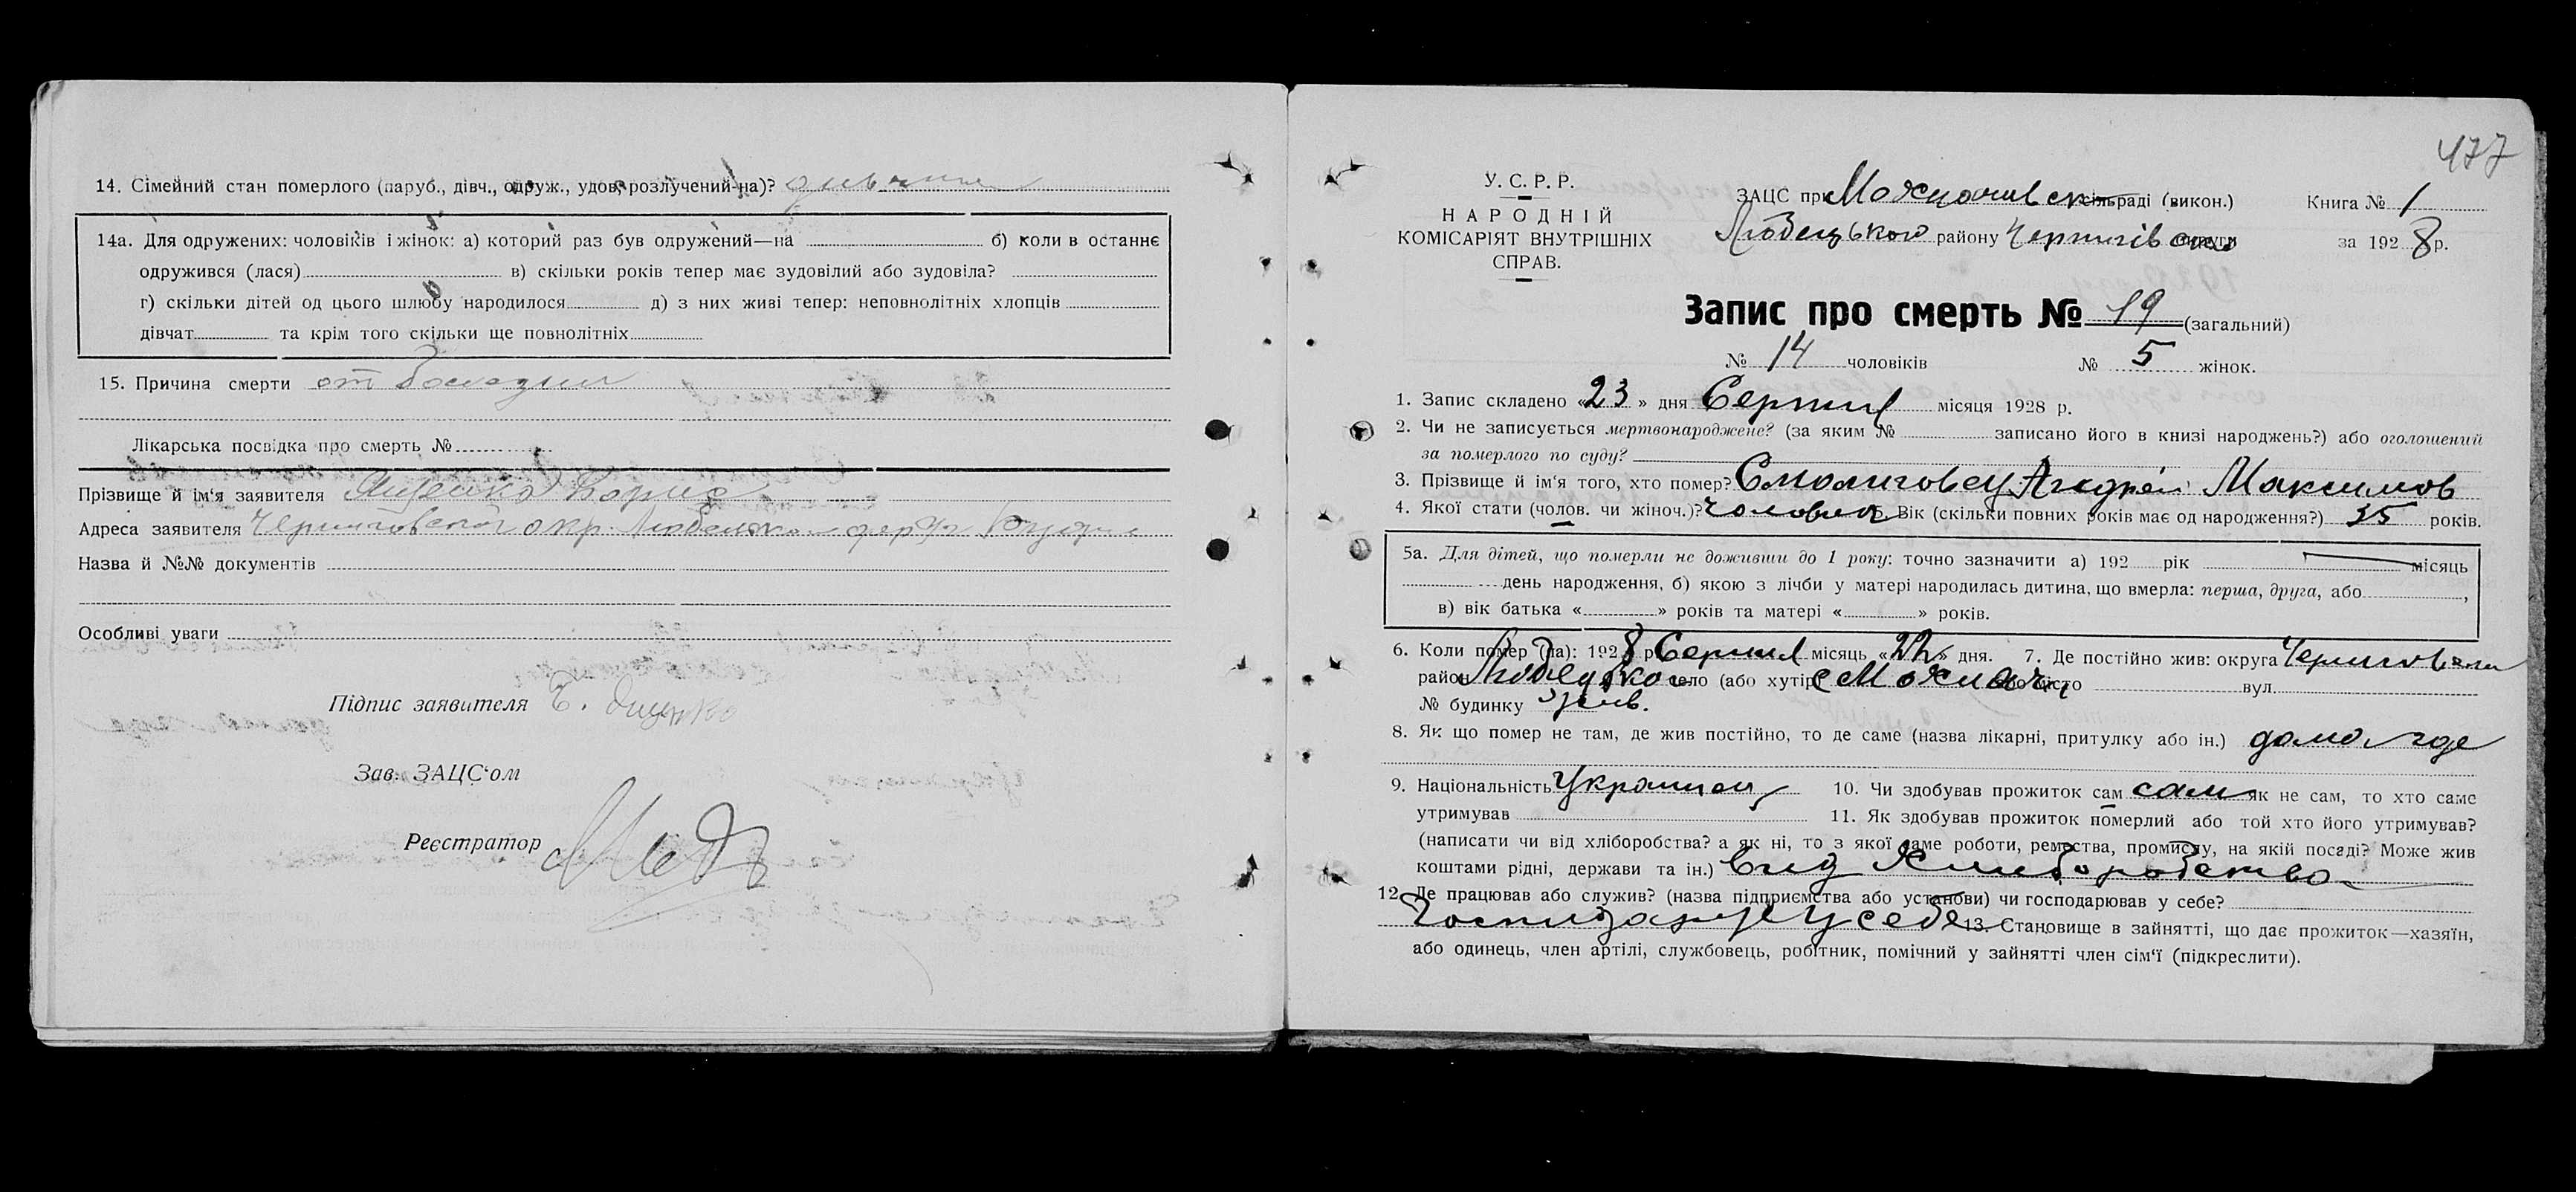 14. Сімейний стан померлого (паруб., дівч., одруж., удов., розлучений-на)? дивчина
14а. Для одружених: чоловіків і жінок: а) который раз був одружений—на б) коли в останнє
одружився (лася) в) скільки років тепер має зудовілий або зудовіла?
г) скільки дітей од цього шлюбу народилося д) з них живі тепер: неповнолітніх хлопців
дівчат та крім того скільки ще повнолітніх
15. Причина смерти от болезни
Лікарська посвідка про смерть №
Прізвище й ім‘я заявителя Ященко Борис
Адреса заявителя Черниговской окр Любецкого
Назва й №№ документів
Особливі уваги
Підпис заявителя Б.
Зав. ЗАЦС‘ом
Реєстратор
477
У. С. Р. Р.
НАРОДНІЙ
КОМІСАРІЯТ ВНУТРІШНІХ
СПРАВ.
ЗАЦС приМожначивск сільраді (викон.) Книга № 1
Любецького району Чернигівско округи за 1928 р.
Запис про смерть № 19 (загальний)
№ 14 чоловіків № 5 жінок.
1. Запис складено «23» дня Серпня місяця 1928 р.
2. Чи не записується мертвонароджене? (за яким № записано його в книзі народжень?) або оголошений
за померлого по суду?
3. Прізвище й ім‘я того, хто помер? Смолиговец Андрей Максимов
4. Якої стати (чолов. чи жіноч.)? Чоловича 5. Вік (скільки повних років має од народження?) 35 років.
5а. Для дітей, що померли не доживши до 1 року: точно зазначити а) 192 рік місяць
день народження, б) якою з лічби у матері народилась дитина, що вмерла: перша, друга, або ,
в) вік батька « » років та матері « » років.
6. Коли помер (ла): 1928 р Серпня місяць «22» дня. 7. Де постійно жив: округа Чернигов
район Любецького село (або хутір) с Можначи або місто вул.
№ будинку
8. Як що помер не там, де жив постійно, то де саме (назва лікарні, притулку або ін.) дома
9. Національність Украинец 10. Чи здобував прожиток сам сам як не сам, то хто саме
утримував 11. Як здобував прожиток померлий або той хто його утримував?
(написати чи від хліборобства? а як ні, то з якої саме роботи, ремества, промислу, на якій посаді? Може жив
коштами рідні, держави та ін.) Вид Хлиборобства
12. Де працював або служив? (назва підприємства або установи) чи господарював у себе?
у себе 13. Становище в зайнятті, що дає прожиток—хазяїн,
або одинець, член артілі, службовець, робітник, помічний у зайнятті член сім‘ї (підкреслити).